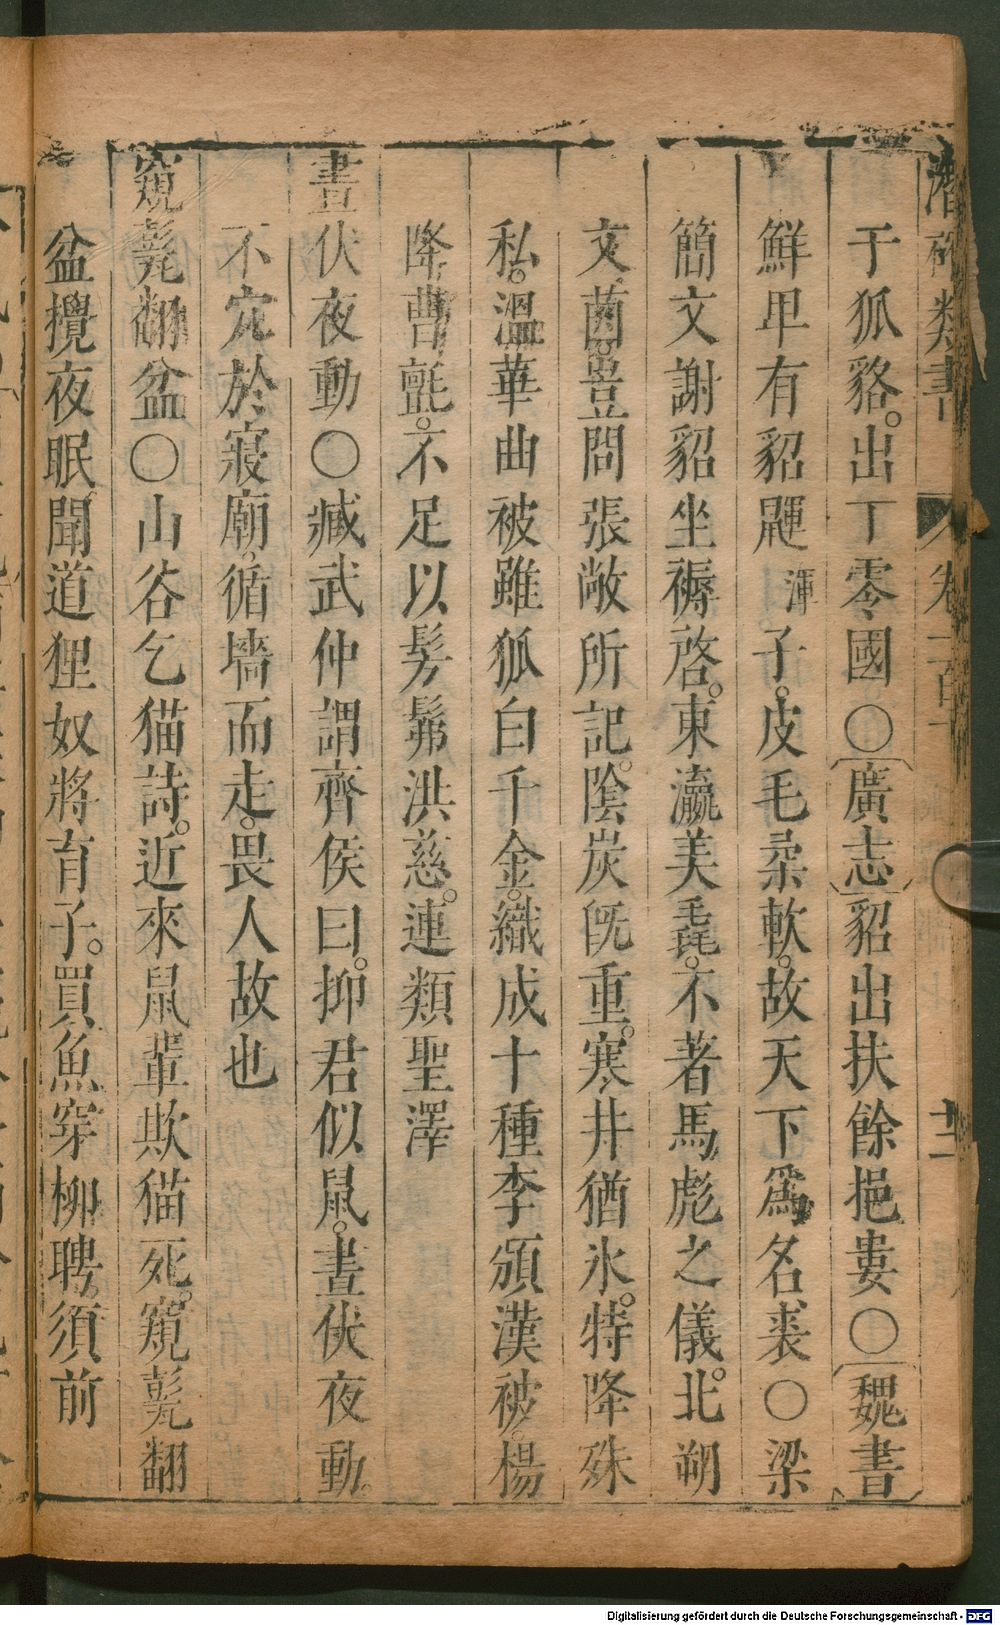 潛確類書 卷一百十
于狐貉。出丁零國〇廣志貂出扶餘挹婁〇魏書
鮮卑有貂䶎渾子。皮毛柔軟。故天下爲名裘〇梁
簡文謝貂坐褥啓。東瀛美毳。不著馬彪之儀。北朔
文茵。罕問張敞所記。陰炭旣重。寒井猶氷。特降殊
私。溫華曲被雖狐白千金。織成十種李頒漢被。楊
降曹氈。不足以髣髴洪慈。連類聖澤
晝伏夜動〇臧武仲謂齊侯曰。抑君似鼠。晝伏夜動。
不穴於寢廟。循墻而走。畏人故也
窺甕翻盆〇山谷乞猫詩。近來鼠輩欺猫死。窺甕翻
盆攪夜眠。聞道狸奴將育子。買魚穿柳聘須前
Digitalisierung gefördert durch die Deutsche Forschungsgemeinschaft - DFG